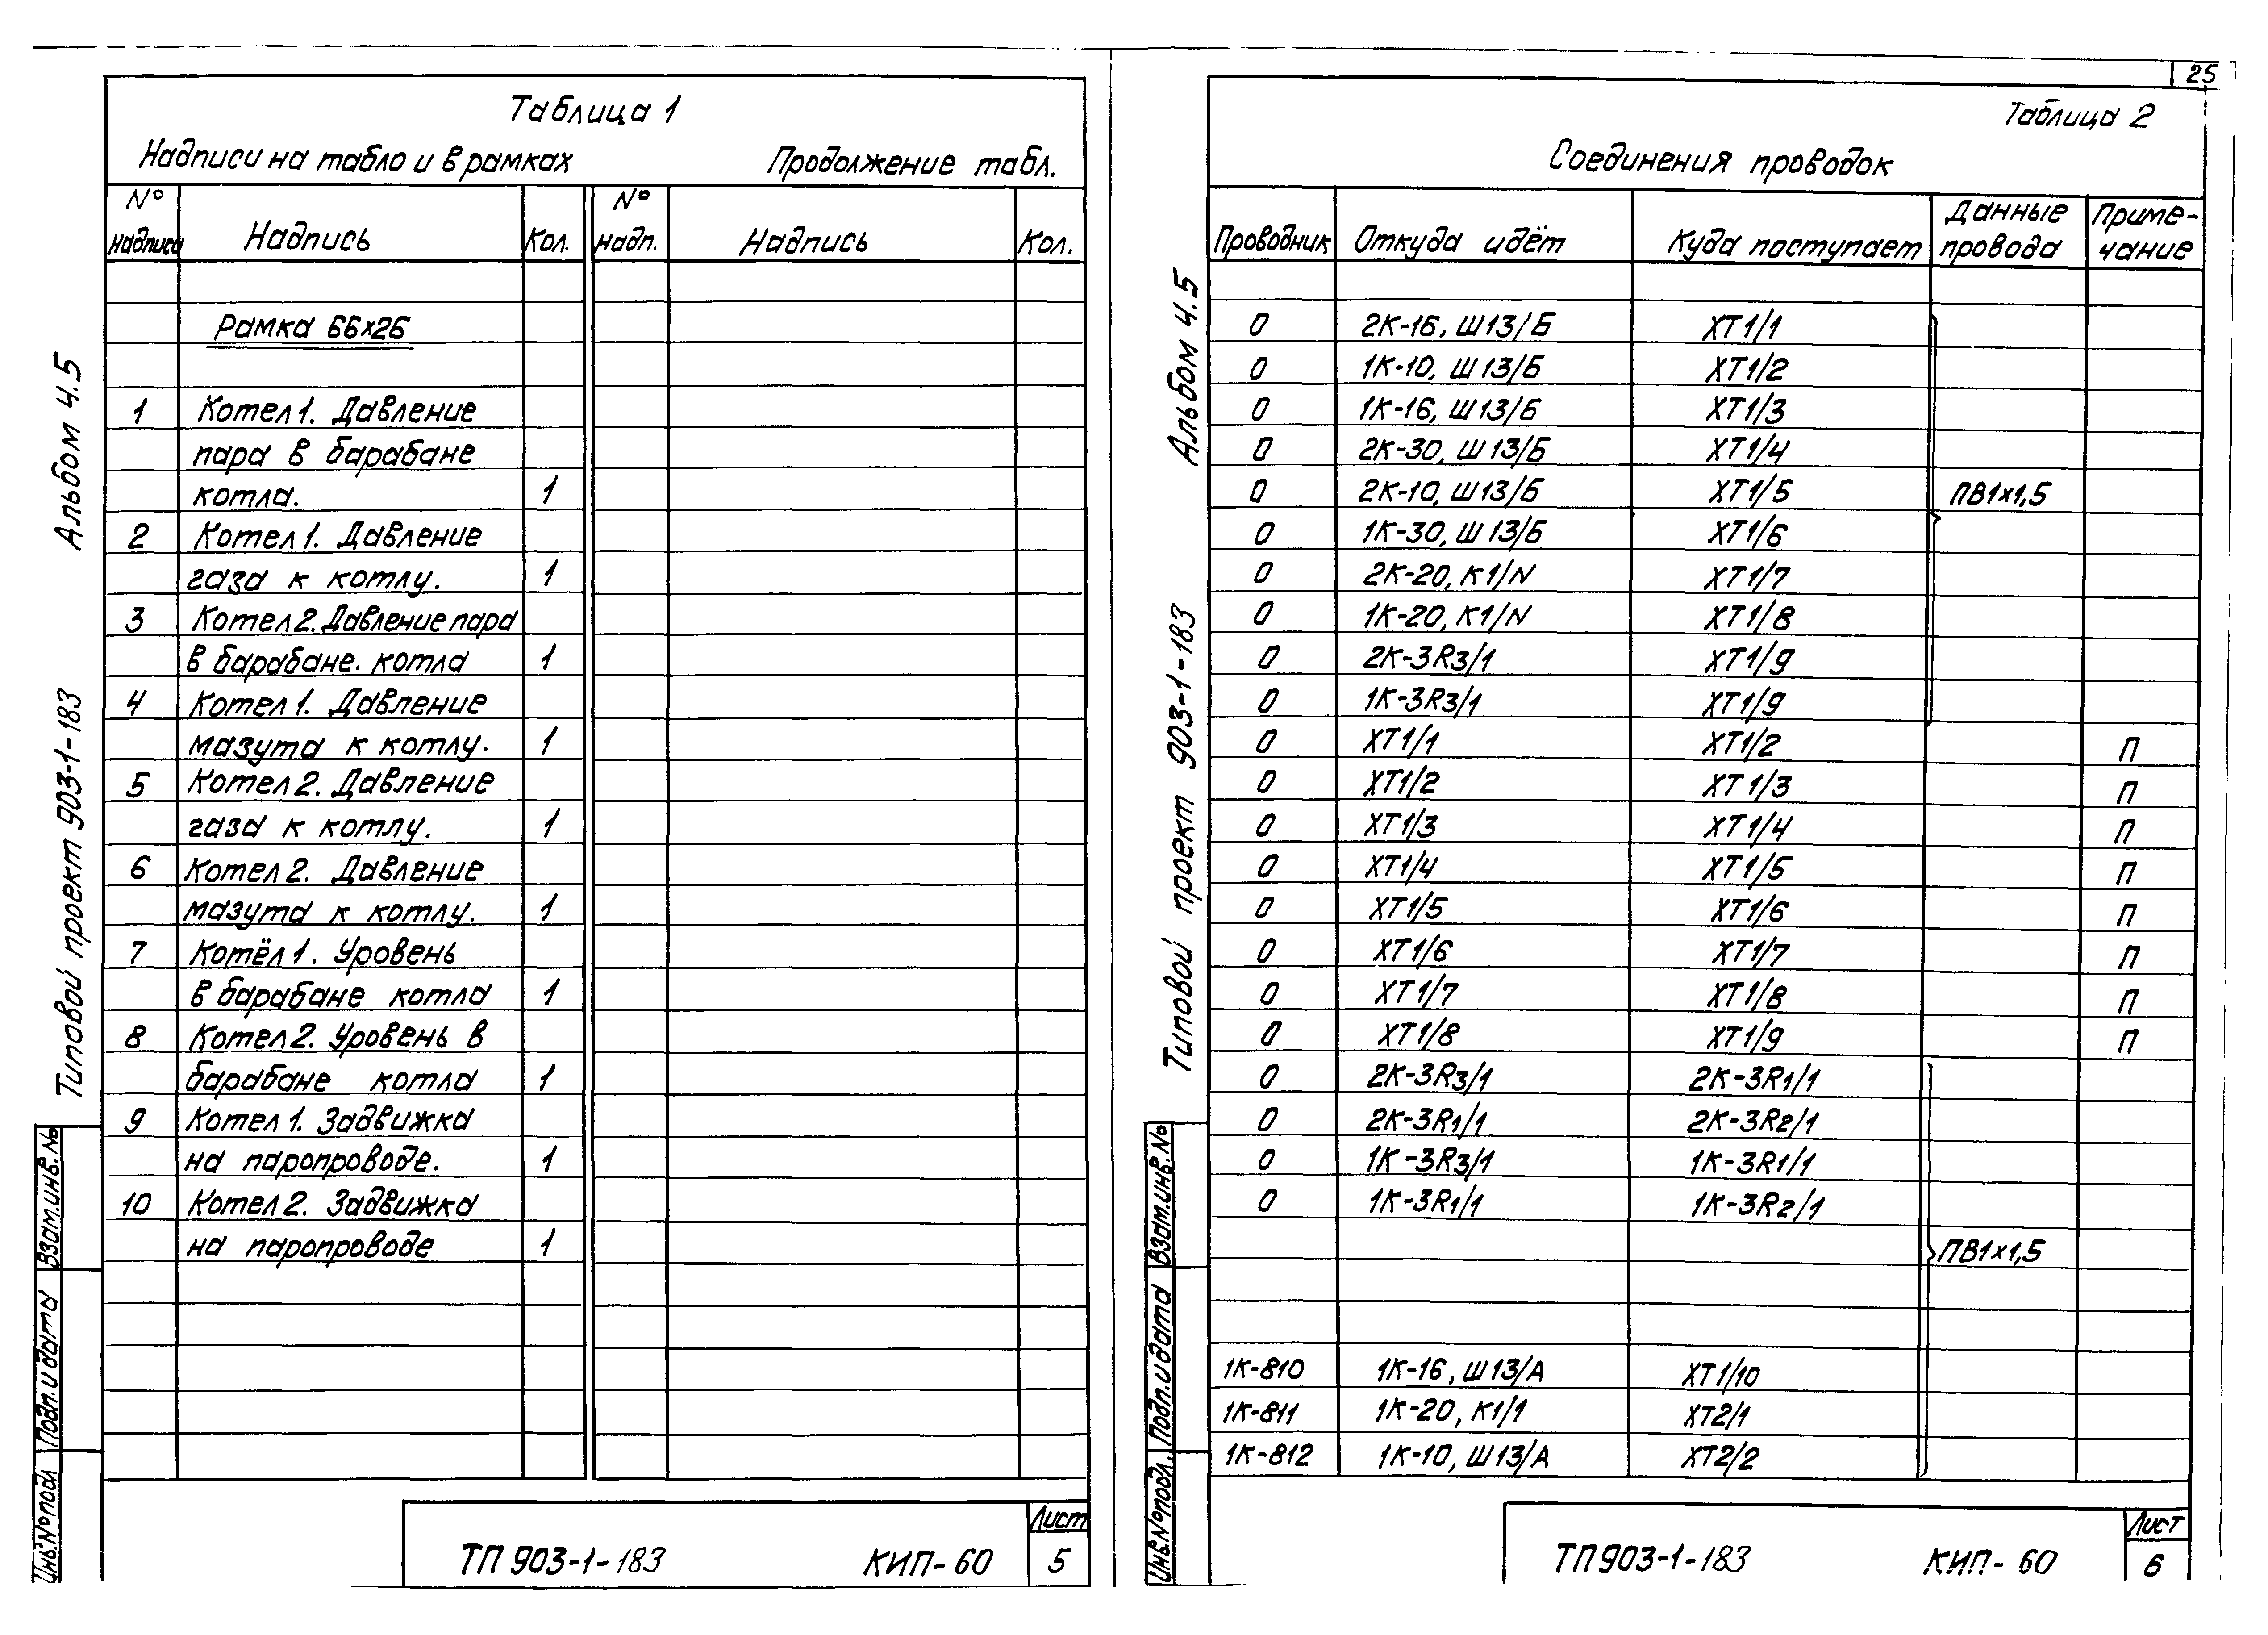 Таблица 1
Надписи на табло и в рамках Продолжение табл.
№ надписи Надпись Кол. № надп. Надпись Кол.
Рамка 66х26
1 Котел 1. Давление
пара в барабане
котла. 1
2 Котел 1. Давление
газа к котлу. 1
3 Котел 2. Давление пара
в барабане. котла 1
4 Котел 1. Давление
мазута к котлу. 1
5 Котел 2. Давление
газа к котлу. 1
6 Котел 2. Давление
мазута к котлу. 1
7 Котёл 1. Уровень
в барабане котла 1
8 Котел 2. Уровень в
барабане котла 1
9 Котел 1. Задвижка
на паропроводе. 1
10 Котел 2. Задвижка
на паропроводе 1
Альбом 4.5
Типовой проект 903-1-183
Взам.инв.№
Подп. и дата
Инв.№ подл
ТП 903-1-183 КИП-60
Лист
5
25
Таблица 2
Соединения проводок
Проводник Откуда идёт Куда поступает Данные провода Приме-чание
0 2К-16, Ш13/Б ХТ1/1
0 1К-10, Ш13/Б ХТ1/2
0 1К-16, Ш13/Б ХТ1/3
0 2К-30, Ш13/Б ХТ1/4
0 2К-10, Ш13/Б ХТ1/5 ПВ1х1,5
0 1К-30, Ш13/Б ХТ1/6
0 2К-20, К1/N ХТ1/7
0 1К-20, К1/N ХТ1/8
0 2К-3R3/1 ХТ1/9
0 1К-3R3/1 ХТ1/9
0 ХТ1/1 ХТ1/2 П
0 ХТ1/2 ХТ1/3 П
0 ХТ1/3 ХТ1/4 П
0 ХТ1/4 ХТ1/5 П
0 ХТ1/5 ХТ1/6 П
0 ХТ1/6 ХТ1/7 П
0 ХТ1/7 ХТ1/8 П
0 ХТ1/8 ХТ1/9 П
0 2К-3R3/1 2К-3R1/1
0 2К-3R1/1 2К-3R2/1
0 1К-3R3/1 1К-3R1/1
0 1К-3R1/1 1К-3R2/1
ПВ1х1,5
1К-810 1К-16, Ш13/А ХТ1/10
1К-811 1К-20, К1/1 ХТ2/1
1К-812 1К-10, Ш13/А ХТ2/2
Альбом 4.5
Типовой проект 903-1-183
Взам.инв.№
Подп. и дата
Инв.№ подл.
ТП 903-1-183 КИП-60
Лист
6